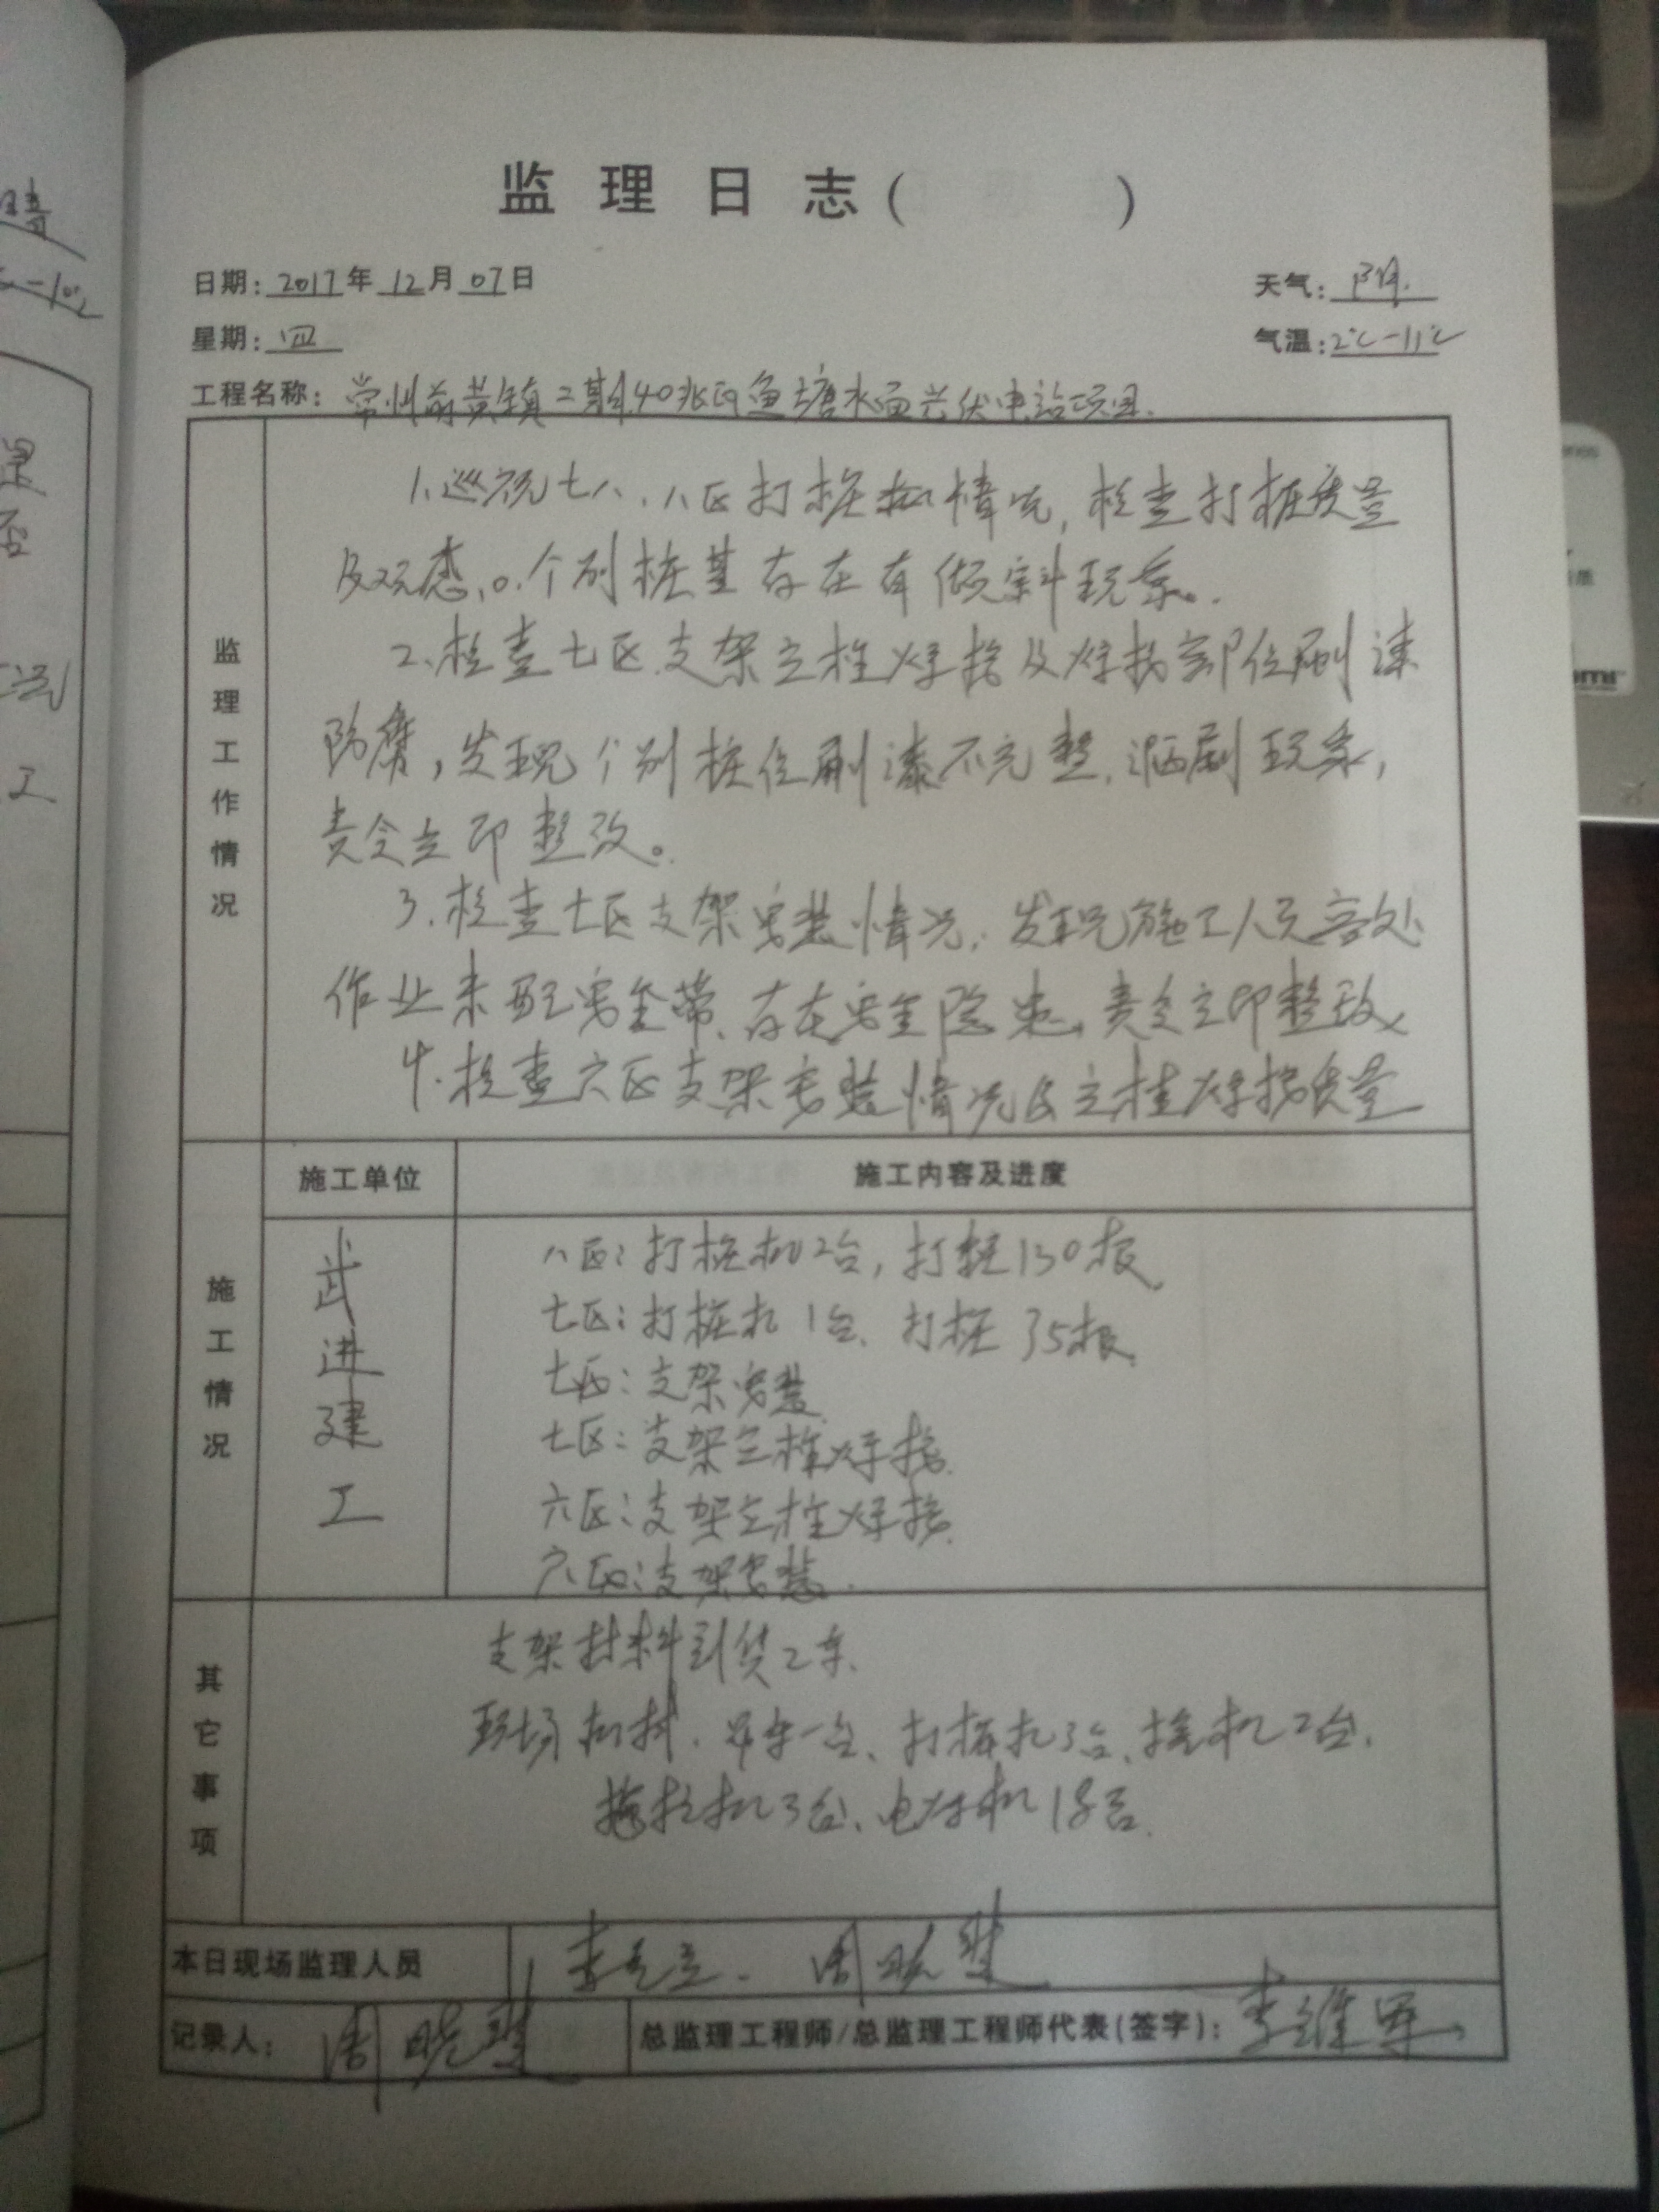 监理日志( )
日期:2017年12月07日
天气:阴
星期:四
气温:2℃-11℃
工程名称:常州前黄镇二期40兆瓦鱼塘水面光伏电站项目.
监理工作情况
1、巡视七、八区打桩机情况,检查打桩质量
及观感。个别桩基存在有倾斜现象。
2、检查七区支架立柱焊接及焊接部位刷漆
防腐,发现个别桩位刷漆不完整,漏刷现象,
责令立即整改。
3.检查七区支架安装情况,发现施工人员高处
作业未配安全带、存在安全隐患,责令立即整改
4.检查六区支架安装情况及立柱焊接质量
施工单位
施工内容及进度
施工情况
武进建工
八区:打桩机2台,打桩130根.
七区:打桩机1台、打桩35根.
七区:支架安装
七区:支架立柱焊接.
六区:支架立柱焊接.
六区:支架安装.
其它事项
支架材料到货2车.
现场机械.吊车一台、打桩机3台、挖机2台.
机3台、电焊机18台.
本日现场监理人员
周晓
记录人:周晓
总监理工程师/总监理工程师代表(签字):李维军
晴
工